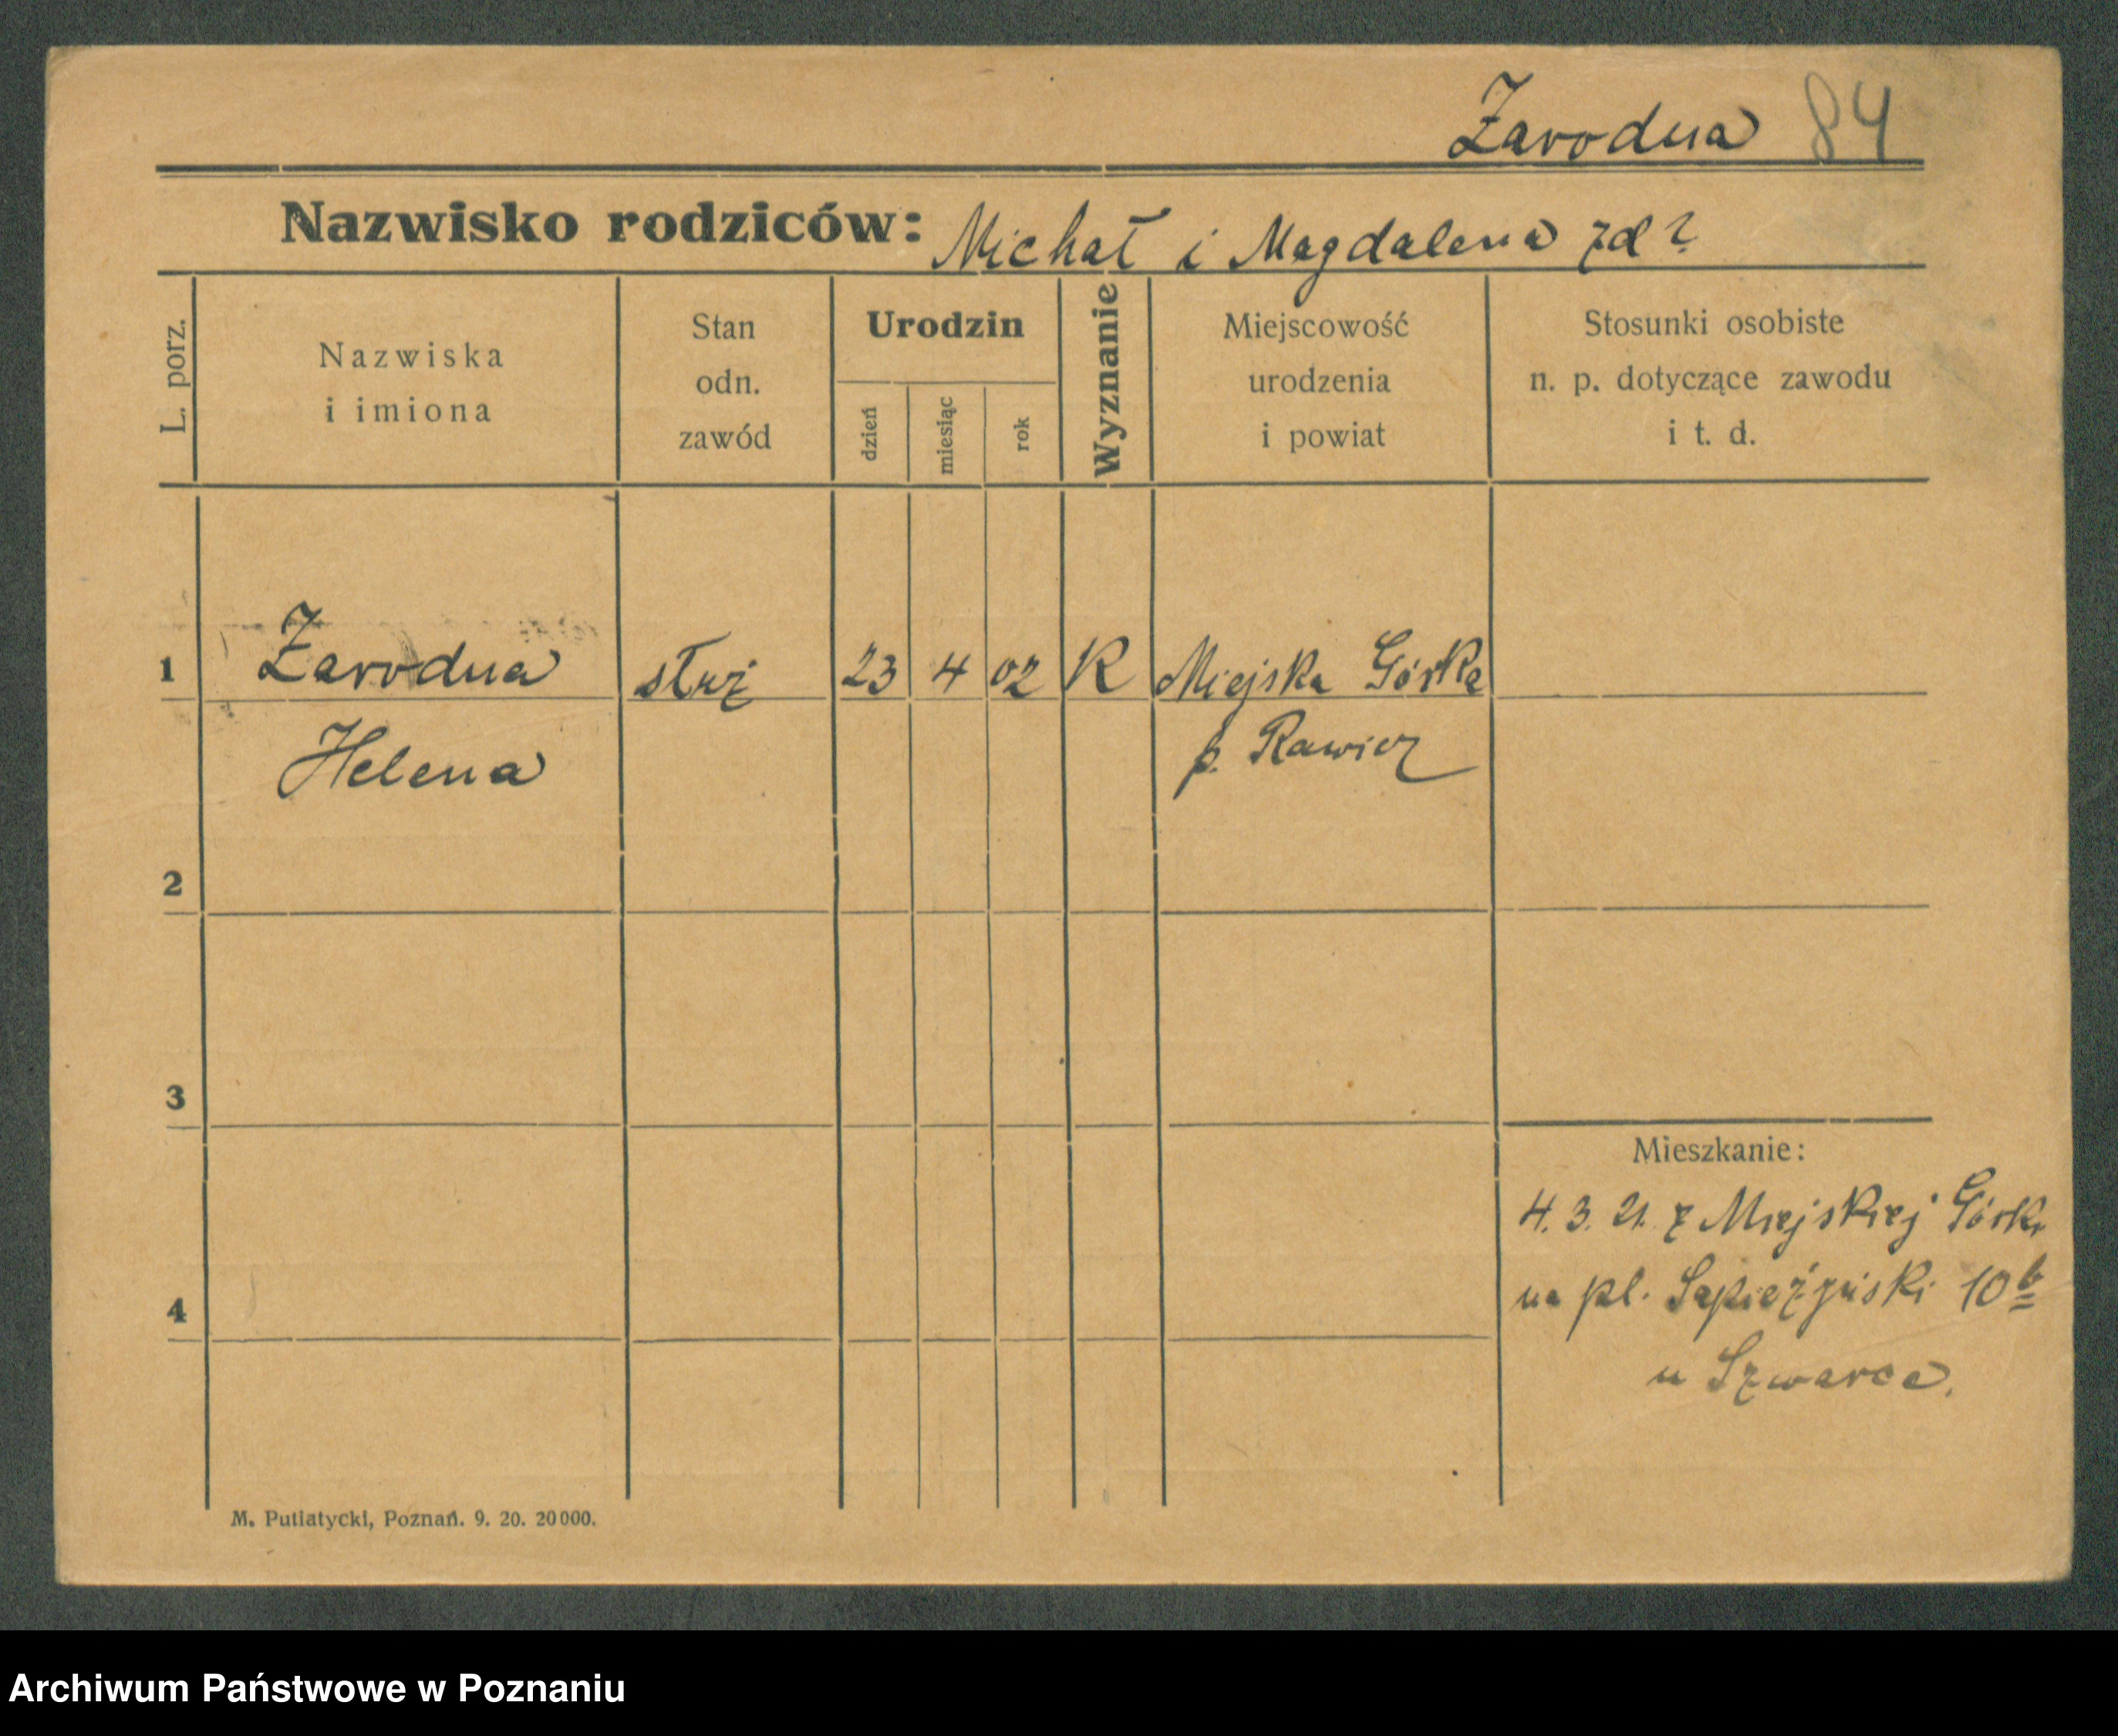 Żarodna 84
Nazwisko rodziców: Michał i Magdalena zd?
L. porz.
Nazwiska
i imiona
Stan
odn.
zawód
Urodzin
dzień
miesiąc
rok
Wyznanie
Miejscowość
urodzenia
i powiat
Stosunki osobiste
n. p. dotyczące zawodu
i t. d.
1 Żarodna służ 23 4 02 K Miejska Górka
Helena p. Rawicz
2
3
Mieszkanie:
4. 3. 21. z Miejskiej Górki
na pl. Sapieżyński 10b
4
u Szwarca.
M. Putiatycki, Poznań. 9. 20. 20000.
Archiwum Państwowe w Poznaniu